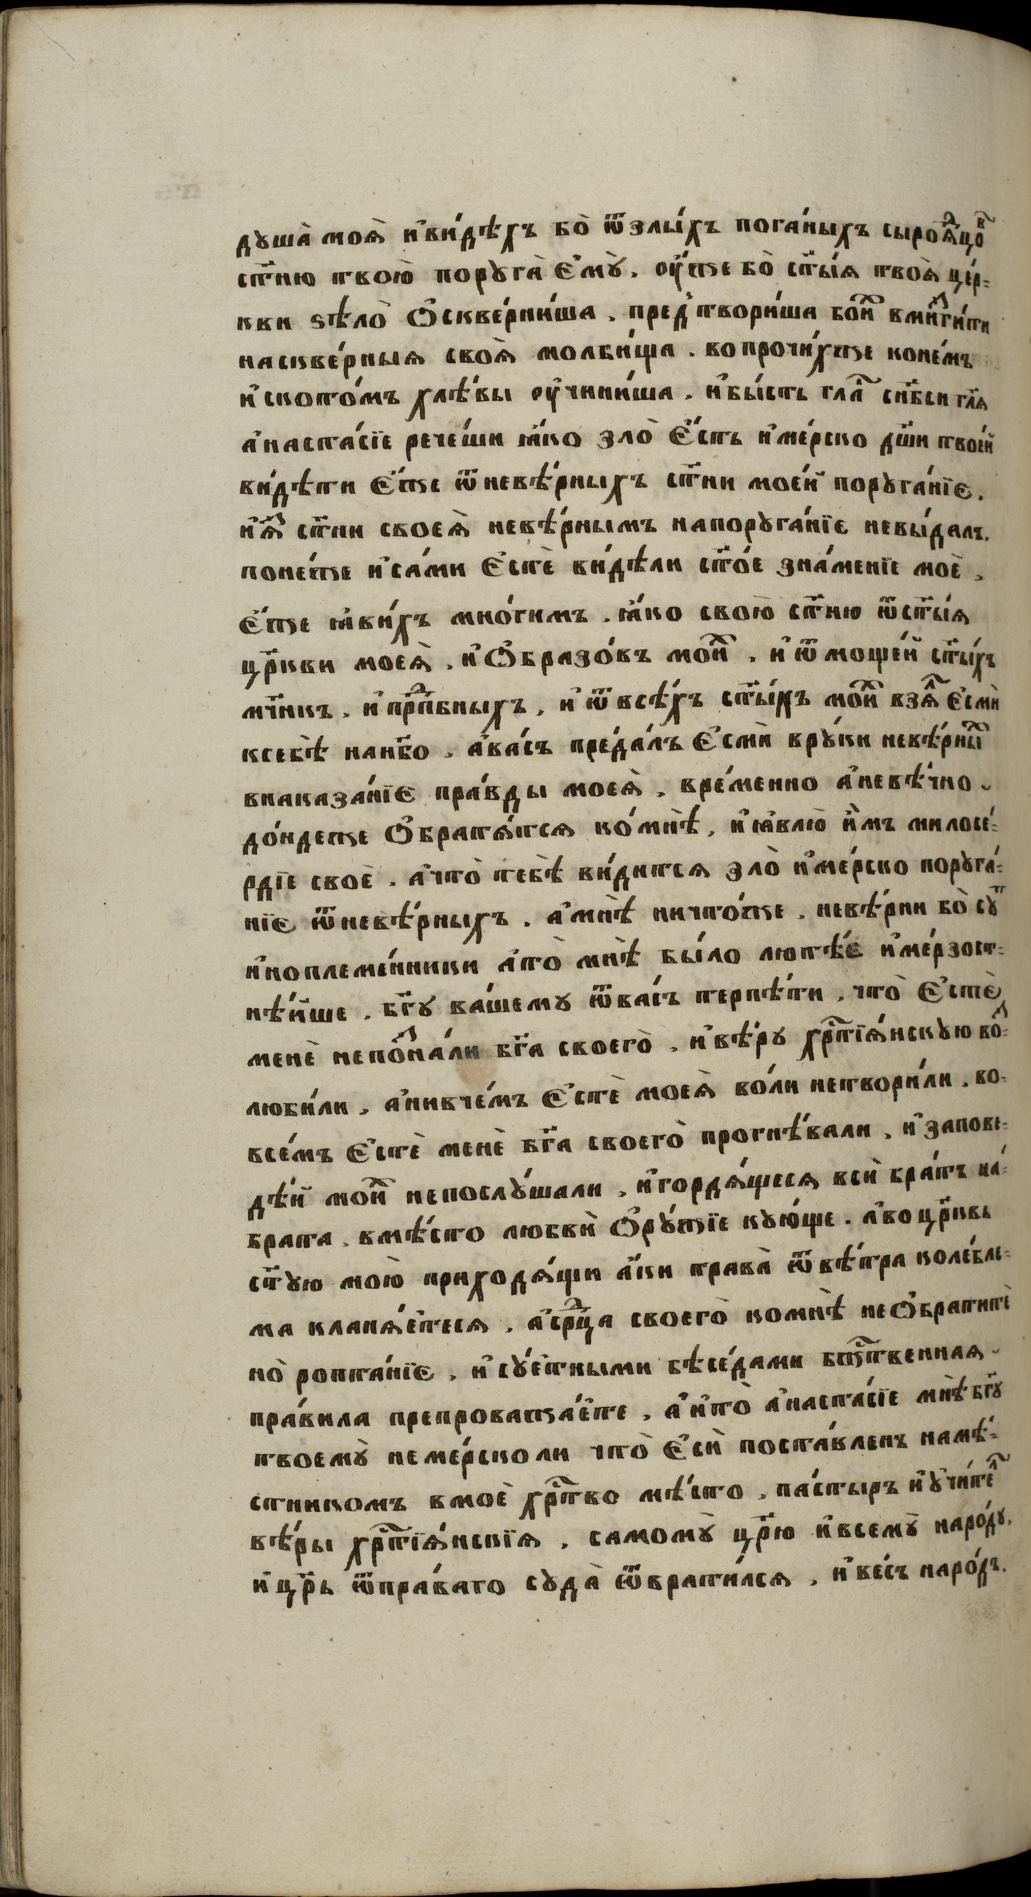 душа̀ моя̀ и҆ви́дѣхъ бо̀ ѿзлы́хъ пога́ныхъ сыроя́дцов
ст҃ню твою̀ поруга̀ е҆мꙋ̀. оу҆́же бо̀ ст҃ы́ѧ твоѧ̀ це́р-
кви ѕѣло̀ ѡ҆скве́рниша. пред̾твори́ша бо̀ и҆̀х вми́згити
наскве́рныѧ своѧ̀ молби́ща. вопрочи́хже коне́мъ
и҆ското́мъ хлѣ́вы оу҆чини́ша. и҆бы́сть гла́с сни́бси гл҃ѧ
а҆наста́сїе рече́ши ꙗ҆́ко зло̀ є҆́сть и҆ме́рско дш҃и твое́й
ви́дѣти є҆́же ѿневѣ́рныхъ ст҃ни мое́й поруга́нїє.
и҆́аз ст҃ни своеѧ̀ невѣ́рнымъ напоруга́нїє невы́далъ.
поне́же и҆са́ми є҆стѐ ви́дѣли ст҃о́е зна́менїе моѐ,
є҆́же ꙗ҆ви́хъ мно́гимъ. ꙗ҆́ко свою̀ ст҃ню ѿст҃ы́ѧ
цр҃кви моеѧ̀. и҆ѡ҆бразо́въ мои́х. и҆ѿмоще́й ст҃ы́хъ
мч҃нкъ. и҆прп҃бныхъ, и҆ѿвсѣ́хъ ст҃ы́хъ мои́х взѧ́л є҆смѝ
ксебѣ̀ нанб҃о. а҆ва́съ преда́лъ є҆смѝ вру́ки невѣ́рных
внаказа́нїє пра́вды моеѧ̀, вре́менно а҆невѣ́чно
до́ндеже ѡ҆братѧ́тсѧ ко́мнѣ, и҆ꙗ҆влю̀ и҆̀мъ милосе́-
рдїе своѐ. а҆что̀ тебѣ̀ ви́дитсѧ зло̀ и҆ме́рско поруга́-
нїє ѿневѣ́рныхъ. а҆мнѣ̀ ничто́же. невѣ́рни бо̀ су́т
и҆ноплеме́нники а҆то̀ мнѣ̀ бы́ло лютѣ́е и҆ме́рзост-
нѣ́йше. бг҃у ва́шему ѿва́съ терпѣ́ти, что̀ є҆стѐ
менѐ непо́знали бг҃а своего̀, и҆вѣ́ру хрⷭ҇тїѧ́нскую воз-
люби́ли. а҆нивче́мъ є҆стѐ моеѧ̀ во́ли нетвори́ли. во-
все́мъ є҆стѐ менѐ бг҃а своего̀ прогнѣ́вали, и҆запове-
дѣ́й мои́х непослу́шали, и҆гордѧ́щесѧ всѝ бра́тъ на́-
брата. вмѣ́сто любвѝ ѡ҆ру́жїе кую́ще. а҆воцр҃квь
ст҃ую мою̀ приходѧ́щи а҆́ки трава̀ ѿвѣ́тра колебле-
ма кланѧ́етесѧ. а҆срⷣца своего̀ комнѣ̀ неѡ҆брати́те
но̀ ропта́нїє, и҆су́етными бѣсе́дами бжⷭ҇твеннаѧ
пра́вила препроважа́ете, а҆и҆то̀ а҆наста́сїе мнѣ̀ бг҃у
твоемꙋ̀ неме́рсколи что̀ є҆сѝ поста́вленъ намѣ́-
стникомъ вмоѐ хрⷭ҇тво мѣ́сто, па́стырь и҆учи́тел
вѣ́ры хрⷭ҇тїѧ́нскїѧ, самомꙋ̀ цр҃ю и҆всемꙋ̀ наро́ду,
и҆цр҃ь ѿпра́ваго суда̀ ѿврати́лсѧ, и҆ве́съ наро́дъ.